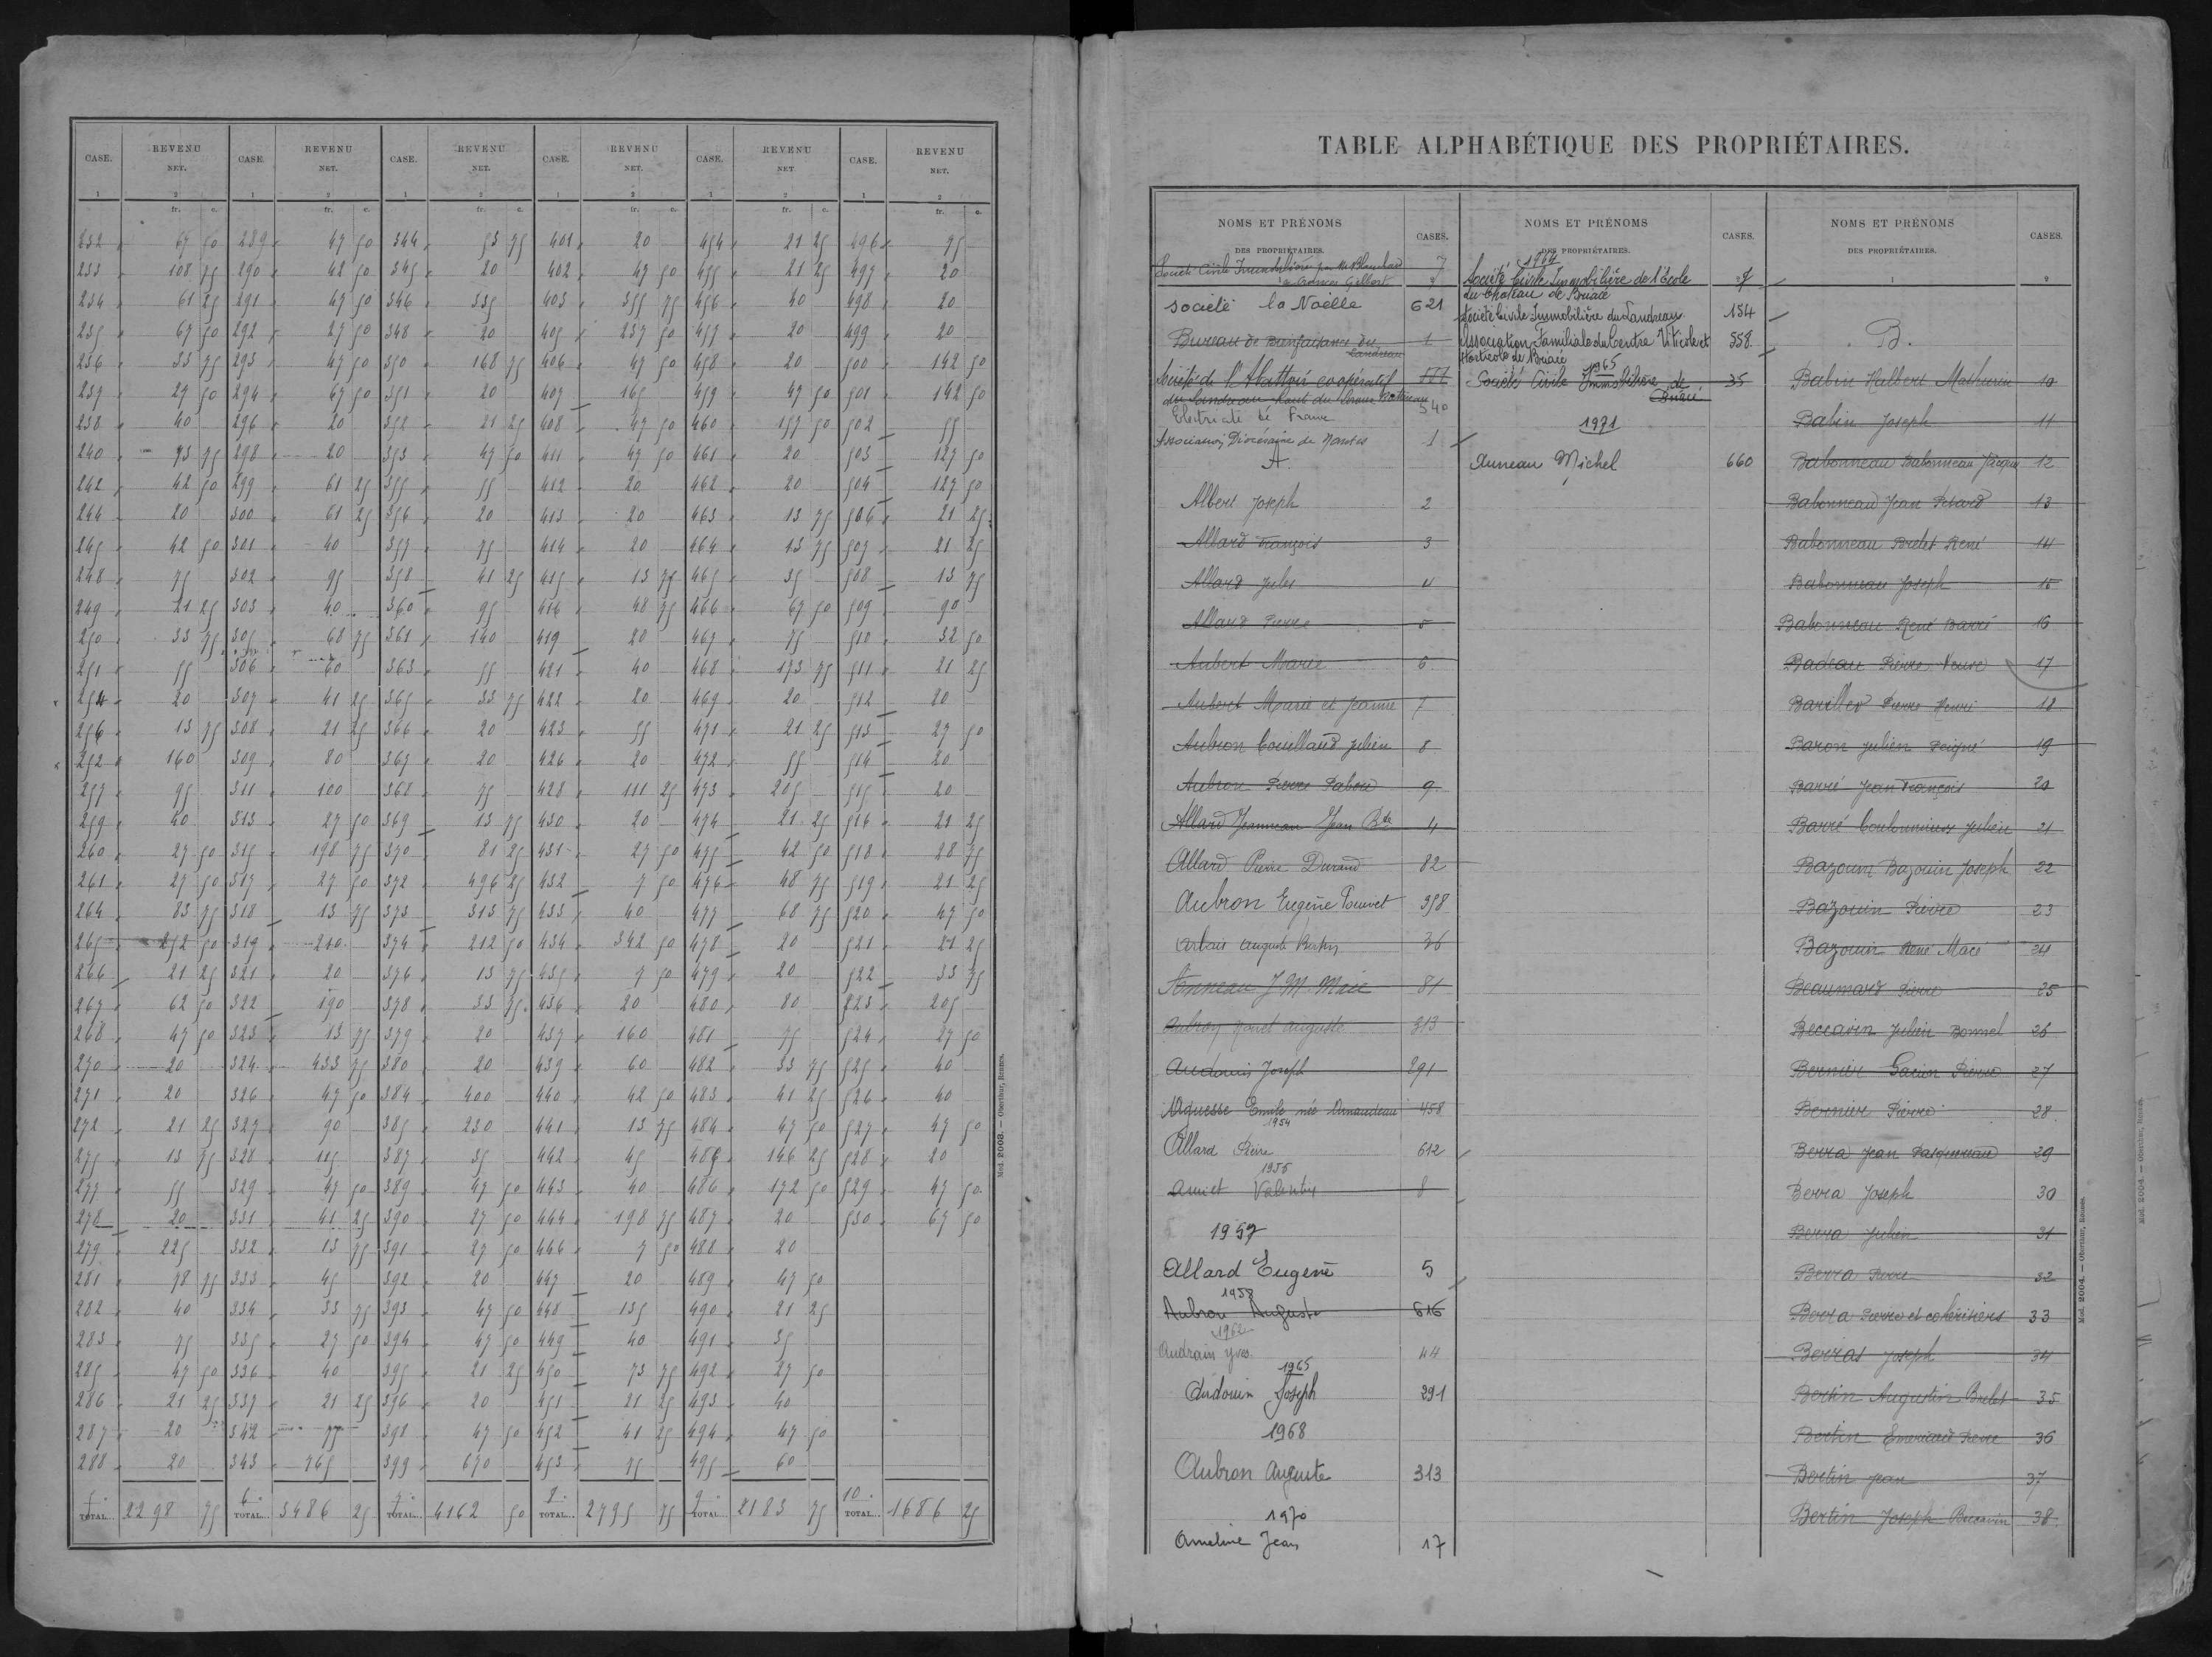 CASE. REVENU NET. CASE. REVENU NET. CASE. REVENU NET. CASE. REVENU NET. CASE. REVENU NET. CASE. REVENU NET.
1 2 1 2 1 2 1 2 1 2 1 2
fr. c. fr. c. fr. c. fr. c. fr. c. fr. c.
232 67 50 289 47 50 344 53 75 401 20 454 21 25 496 75
233 108 75 290 42 50 345 20 402 47 50 455 21 25 497 20
234 61 25 291 47 50 346 535 403 355 75 456 40 498 20
235 67 50 292 27 50 348 20 405 237 50 457 20 499 20
236 33 75 293 47 50 350 168 75 406 47 50 458 20 500 142 50
237 27 50 294 67 50 351 20 407 165 459 47 50 501 142 50
238 40 296 20 352 21 25 408 47 50 460 157 50 502 55
240 73 75 298 20 353 47 50 411 47 50 461 20 503 127 50
242 42 50 299 61 25 355 55 412 20 462 20 504 127 50
244 20 300 61 25 356 20 413 20 463 13 75 506 21 25
245 42 50 301 40 357 75 414 20 464 13 75 507 21 25
248 75 302 95 358 41 25 415 13 75 465 35 508 13 75
249 21 25 303 40 360 95 416 48 75 466 67 50 509 90
250 33 75 305 68 75 361 140 419 20 467 75 510 32 50
251 55 306 60 363 55 421 40 468 173 75 511 21 25
254 20 307 41 25 365 33 75 422 20 469 20 512 20
256 13 75 308 21 25 366 20 423 55 471 21 25 513 27 50
252 160 309 80 367 20 426 20 472 55 514 20
257 95 311 100 368 75 428 111 25 473 205 515 20
259 40 313 27 50 369 13 75 430 20 474 21 25 516 21 25
260 27 50 315 198 75 370 81 25 431 27 50 475 42 50 518 28 75
261 27 50 317 27 50 372 496 25 432 7 50 476 48 75 519 21 25
264 83 75 318 13 75 373 313 75 433 40 477 68 75 520 47 50
265 252 50 319 210 374 212 50 434 342 50 478 20 521 21 25
266 21 25 321 20 376 13 75 435 7 50 479 20 522 33 75
267 62 50 322 190 378 33 75 436 20 480 80 523 205
268 47 50 323 13 75 379 20 437 160 481 75 524 27 50
270 20 324 433 75 380 20 439 60 482 33 75 525 40
271 20 326 47 50 384 400 440 42 50 483 41 25 526 40
272 21 25 327 90 385 230 441 13 75 484 47 50 527 47 50
275 13 75 328 115 387 35 442 45 485 146 25 528 20
277 55 329 47 50 389 47 50 443 40 486 172 50 529 47 50
278 20 331 41 25 390 27 50 444 198 75 487 20 530 67 50
279 225 332 13 75 391 27 50 446 7 50 488 20
281 78 75 333 45 392 20 447 20 489 47 50
282 40 334 33 75 393 47 50 448 135 490 21 25
283 75 335 27 50 394 47 50 449 40 491 35
285 47 50 336 40 395 21 25 450 73 75 492 27 50
286 21 25 337 21 25 396 20 451 21 25 493 40
287 20 342 398 47 50 452 41 25 494 47 50
288 20 343 765 399 670 453 75 495 60
TOTAL... 2298 75 TOTAL... 3486 25 TOTAL... 4162 50 TOTAL... 2795 75 TOTAL... 2183 75 10 TOTAL... 1686 25
Mod. 2003. — Oberthur, Rennes.
TABLE ALPHABÉTIQUE DES PROPRIÉTAIRES.
NOMS ET PRÉNOMS DES PROPRIÉTAIRES. CASES.
Société Civile Immobilière
société la Noëlle 621
Bureau de Bienfaisance du Landreau 1
Société de l'Abattoir coopératif
Electricité de France 540
Association Diocésaine de Nantes 1
A.
Albert Joseph 2
Allard François 3
Allard Jules 4
Allard Pierre 5
Aubert Marie 6
Aubert Marie et Jeanne 7
Aubron Couillaud Julien 8
Aubron Pierre Pabou 9
Allard Jeanneau Jean Bte 4
Allard Pierre Durand 82
Aubron Eugène Pouvet 358
Arbais Auguste 36
Anneau J M 81
Aubron Auguste 313
Audouin Joseph 291
Aguesse Emile née 458
1954
Allard Pierre 612
1955
Amiet Valentin 8
1957
Allard Eugène 5
1958
Aubron Auguste 616
1962
Audrain Yves 44
1965
Audouin Joseph 291
1968
Aubron Auguste 313
1970
Ameline Jean 17
NOMS ET PRÉNOMS DES PROPRIÉTAIRES. CASES.
1964
Société Civile Immobilière de l'Ecole 7
du Château de Briacé
Société Civile Immobilière du Landreau 154
Association Familiale du Centre Viticole et 558
Horticole de Briacé
1965
Société Civile Immobilière de Briacé 35
1971
Auneau Michel 660
NOMS ET PRÉNOMS DES PROPRIÉTAIRES. CASES.
B.
Babin Halbert Mathurin 10
Babin Joseph 11
Babonneau Babonneau Jacques 12
Babonneau Jean 13
Babonneau René 14
Babonneau Joseph 15
Babonneau René Barré 16
Badeau Pierre Veuve 17
Bariller Pierre Henri 18
Baron Julien 19
Barré Jean François 20
Barré Julien 21
Bazouin Bazouin Joseph 22
Bazouin Pierre 23
Bazouin René Macé 24
Beaumard Pierre 25
Beccavin Julien Bonnel 26
Bernier Pierre 27
Bernier Pierre 28
Berra Jean Pasquereau 29
Berra Joseph 30
Berra Julien 31
Berra Pierre 32
Berra Pierre et cohéritiers 33
Berras Joseph 34
Bertin Augustin 35
Bertin Pierre 36
Bertin Jean 37
Bertin Joseph Beccavin 38
Mod. 2004. — Oberthur, Rennes.
Mod. 2004. — Oberthur, Rennes.